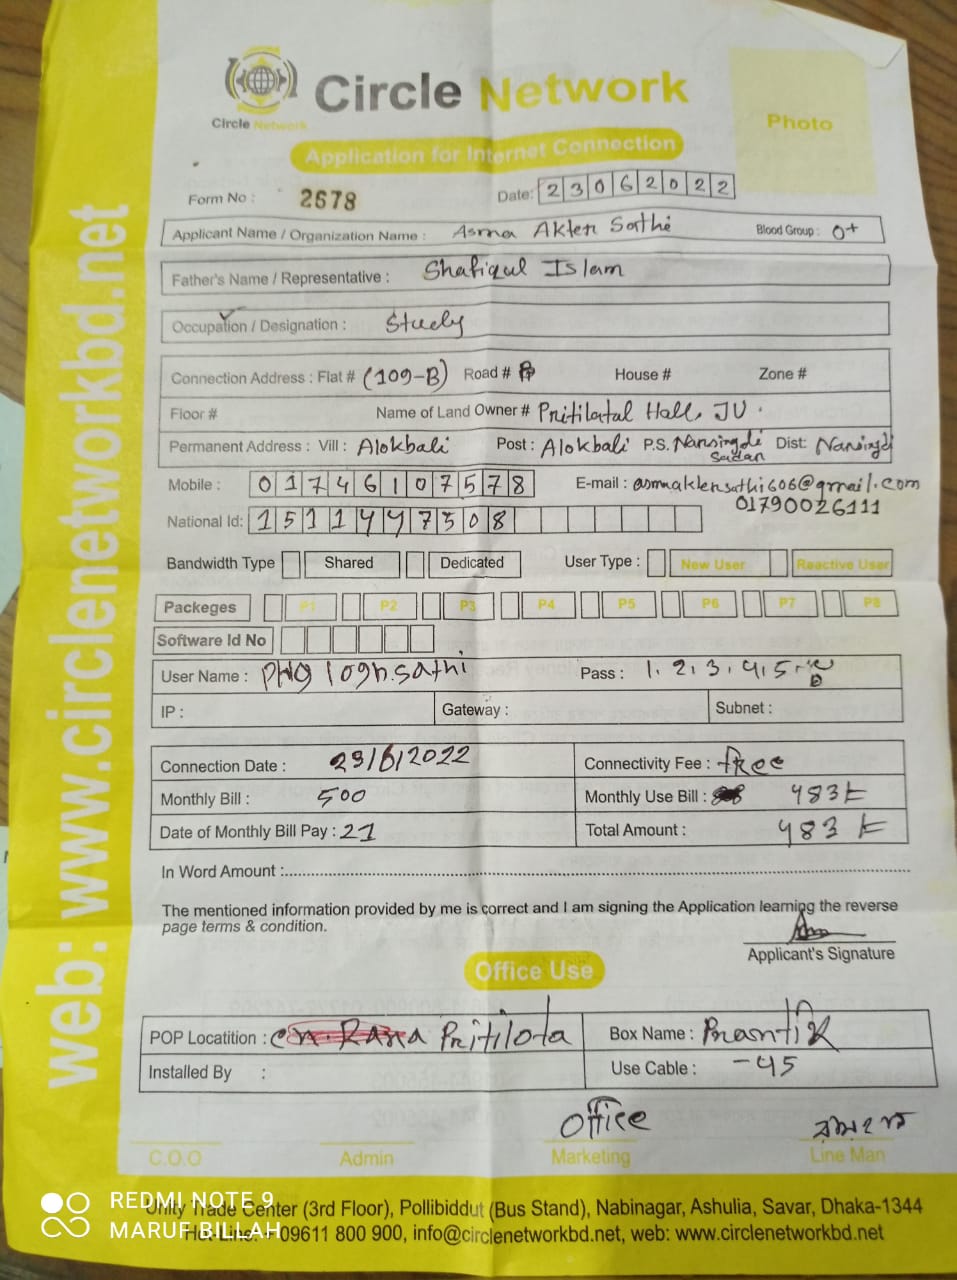 Circle Network
Circle Network
Photo
Application for Internet Connection
Form No : 2678 Date: 23062022
Applicant Name / Organization Name : Asma Akter Sathi Blood Group : O+
Father's Name / Representative : Shafiqul Islam
Occupation / Designation : Study
Connection Address : Flat # (109-B) Road # House # Zone #
Floor # Name of Land Owner # Pritilatal Hall, JU.
Permanent Address : Vill : Alokbali Post : Alokbali P.S. Narsingdi Sadar Dist: Narsingdi
Mobile : 01746107578 E-mail : asmaaktersathi606@gmail.com
01790026111
National Id: 1511447308
Bandwidth Type Shared Dedicated User Type : New User Reactive User
Packeges P1 P2 P3 P4 P5 P6 P7 P8
Software Id No
User Name : Pass : 1.2.3.4.5
IP : Gateway : Subnet :
Connection Date : 23/6/2022 Connectivity Fee : free
Monthly Bill : 500 Monthly Use Bill : 483
Date of Monthly Bill Pay : 21 Total Amount : 483
In Word Amount :
The mentioned information provided by me is correct and I am signing the Application learning the reverse
page terms & condition.
Applicant's Signature
Office Use
POP Locatition : Pritilota Box Name : Prantik
Installed By : Use Cable : -45
Office
C.O.O Admin Marketing Line Man
Unity Trade Center (3rd Floor), Pollibiddut (Bus Stand), Nabinagar, Ashulia, Savar, Dhaka-1344
Hot-Line: +09611 800 900, info@circlenetworkbd.net, web: www.circlenetworkbd.net
web: www.circlenetworkbd.net
REDMI NOTE 9
MARUF BILLAH